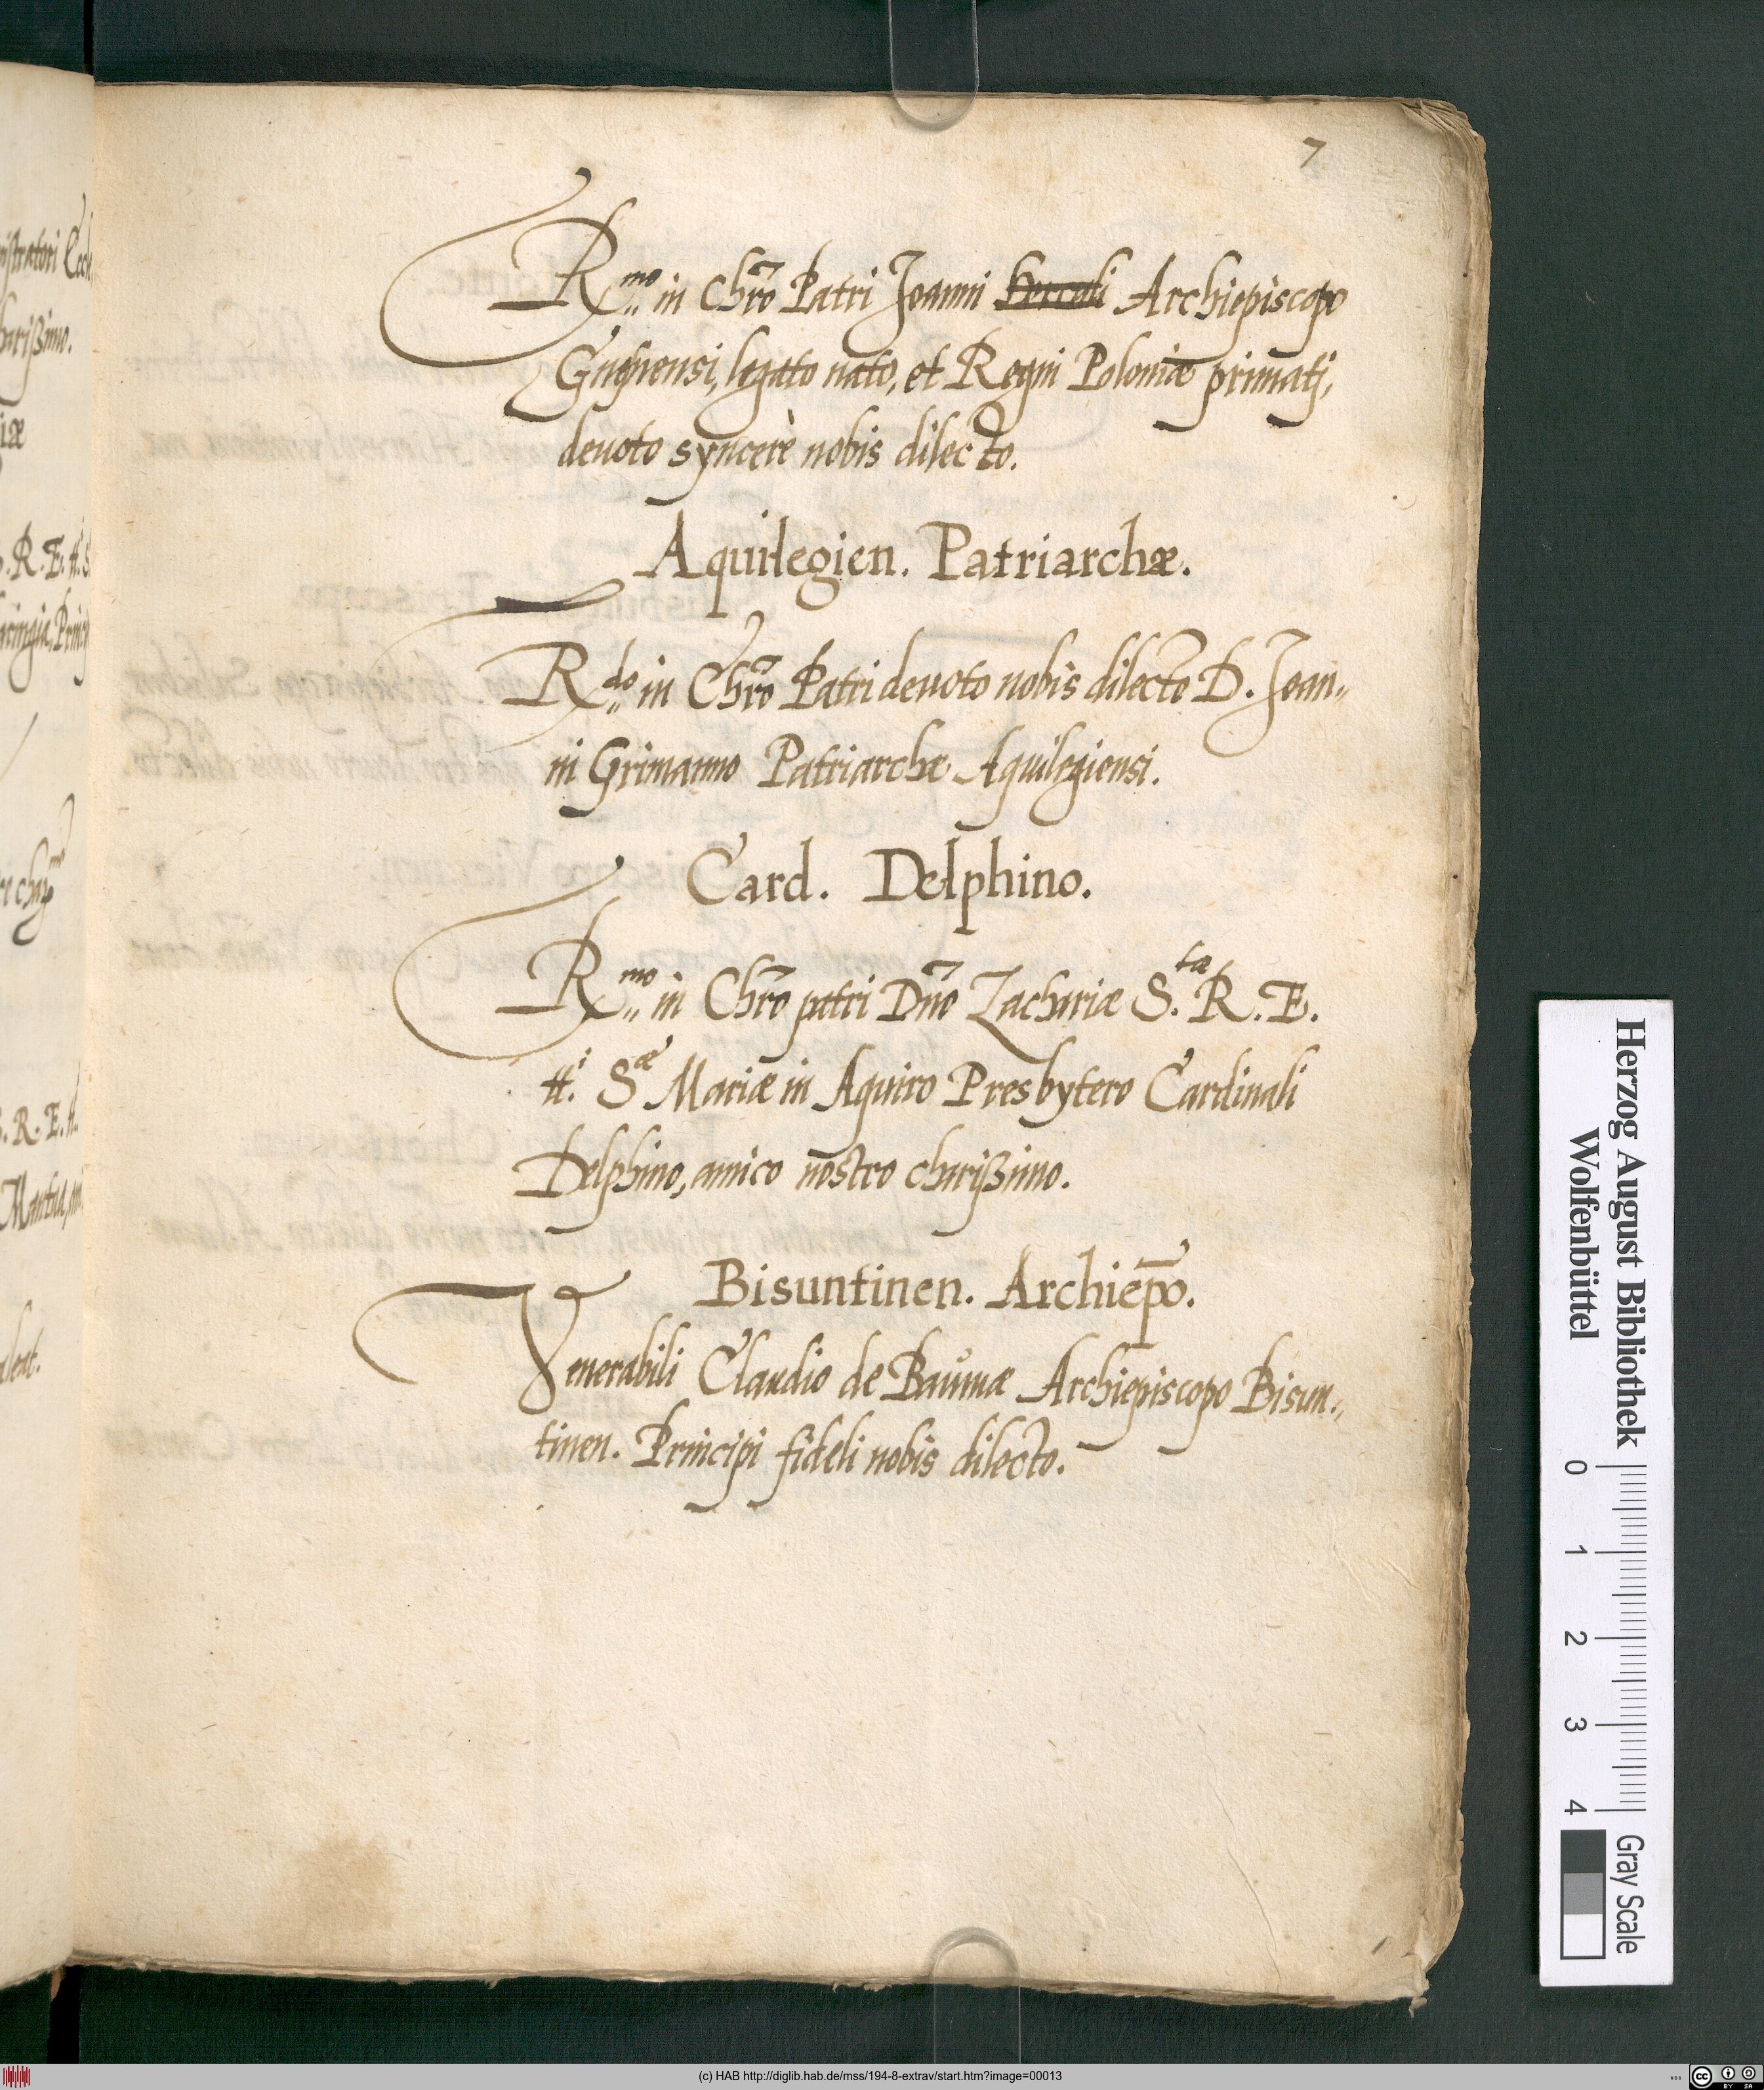 7
R.mo in Chro Patri Joanni Archiepiscopo
Gnesnensi, legato nato, et Regni Poloniæ primati,
deuoto syncerè nobis dilecto.
Aquilegien. Patriarchæ.
R.do in Chro Patri deuoto nobis dilecto D. Joan„
ni Grimanno Patriarchæ Aquilegiensi.
Card. Delphino.
R.mo in Chro patri Dno Zachariæ S.tæ R. E.
tt.i Sæ Mariæ in Aquiro Presbytero Cardinali
Delphino, amico nostro charißimo.
Bisuntinen. Archiepo.
Venerabili Claudio de Baumæ Archiepiscopo Bisun„
tinen. Principi fideli nobis dilecto.
Herzog August Bibliothek
Wolfenbüttel
0 1 2 3 4
Gray Scale
(c) HAB http://diglib.hab.de/mss/194-8-extrav/start.htm?image=00013